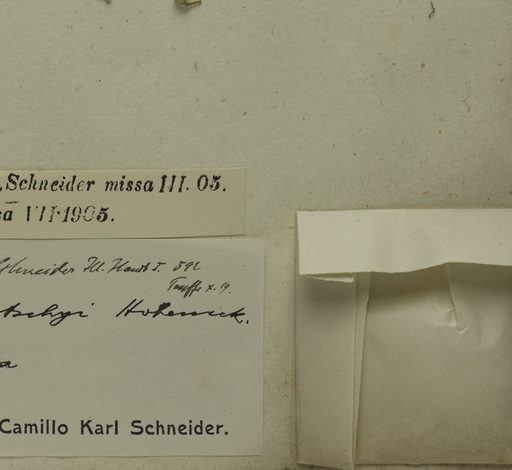 , Schneider missa III. 05.
sa VII·1905.
Schneider Ill. Handb I. 592
tschyi Hohenack.
Camillo Karl Schneider.